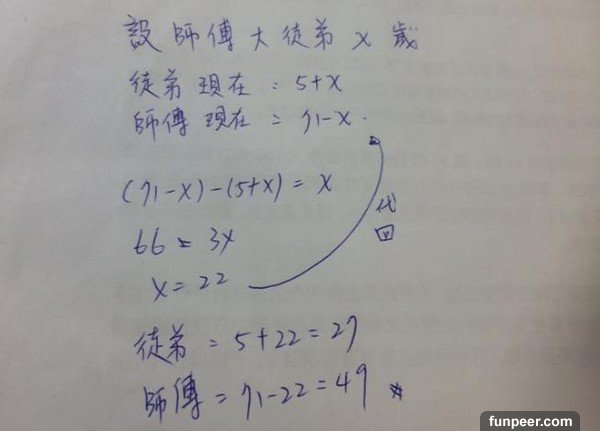 設師傅大徒弟x歲
徒弟現在=5+x
師傅現在=71-x.
(71-x)-(5+x)=x
66=3x
x=22
代回
徒弟=5+22=27
師傅=71-22=49
funpeer.com